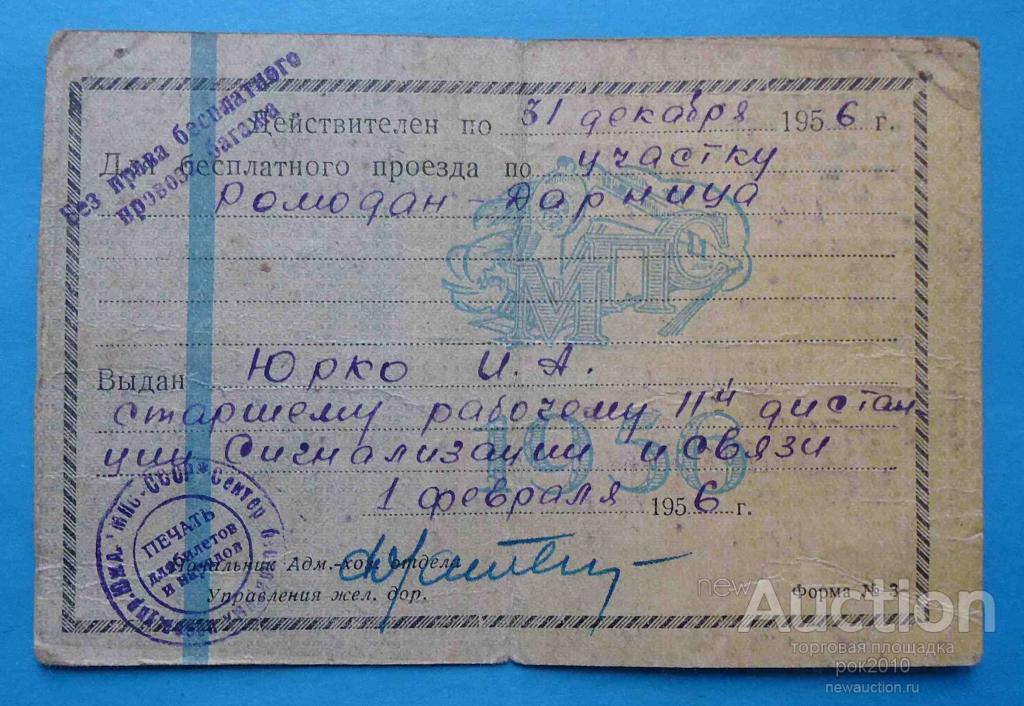 Без права бесплатного
провоза багажа
Действителен по 31 декабря 1956 г.
Для бесплатного проезда по участку
Ромодан - Дарница
МПС
Выдан Юрко И. А.
старшему рабочему 11й дистан
ции Сигнализации и связи
1956
1 февраля 1956 г.
МПС-СССР * Сектор
ПЕЧАТЬ
для билетов
и нарядов
Начальник Адм.-хоз. отдела
Управления жел. дор.
Форма № 3
newAuction
торговая площадка
рок2010
newauction.ru